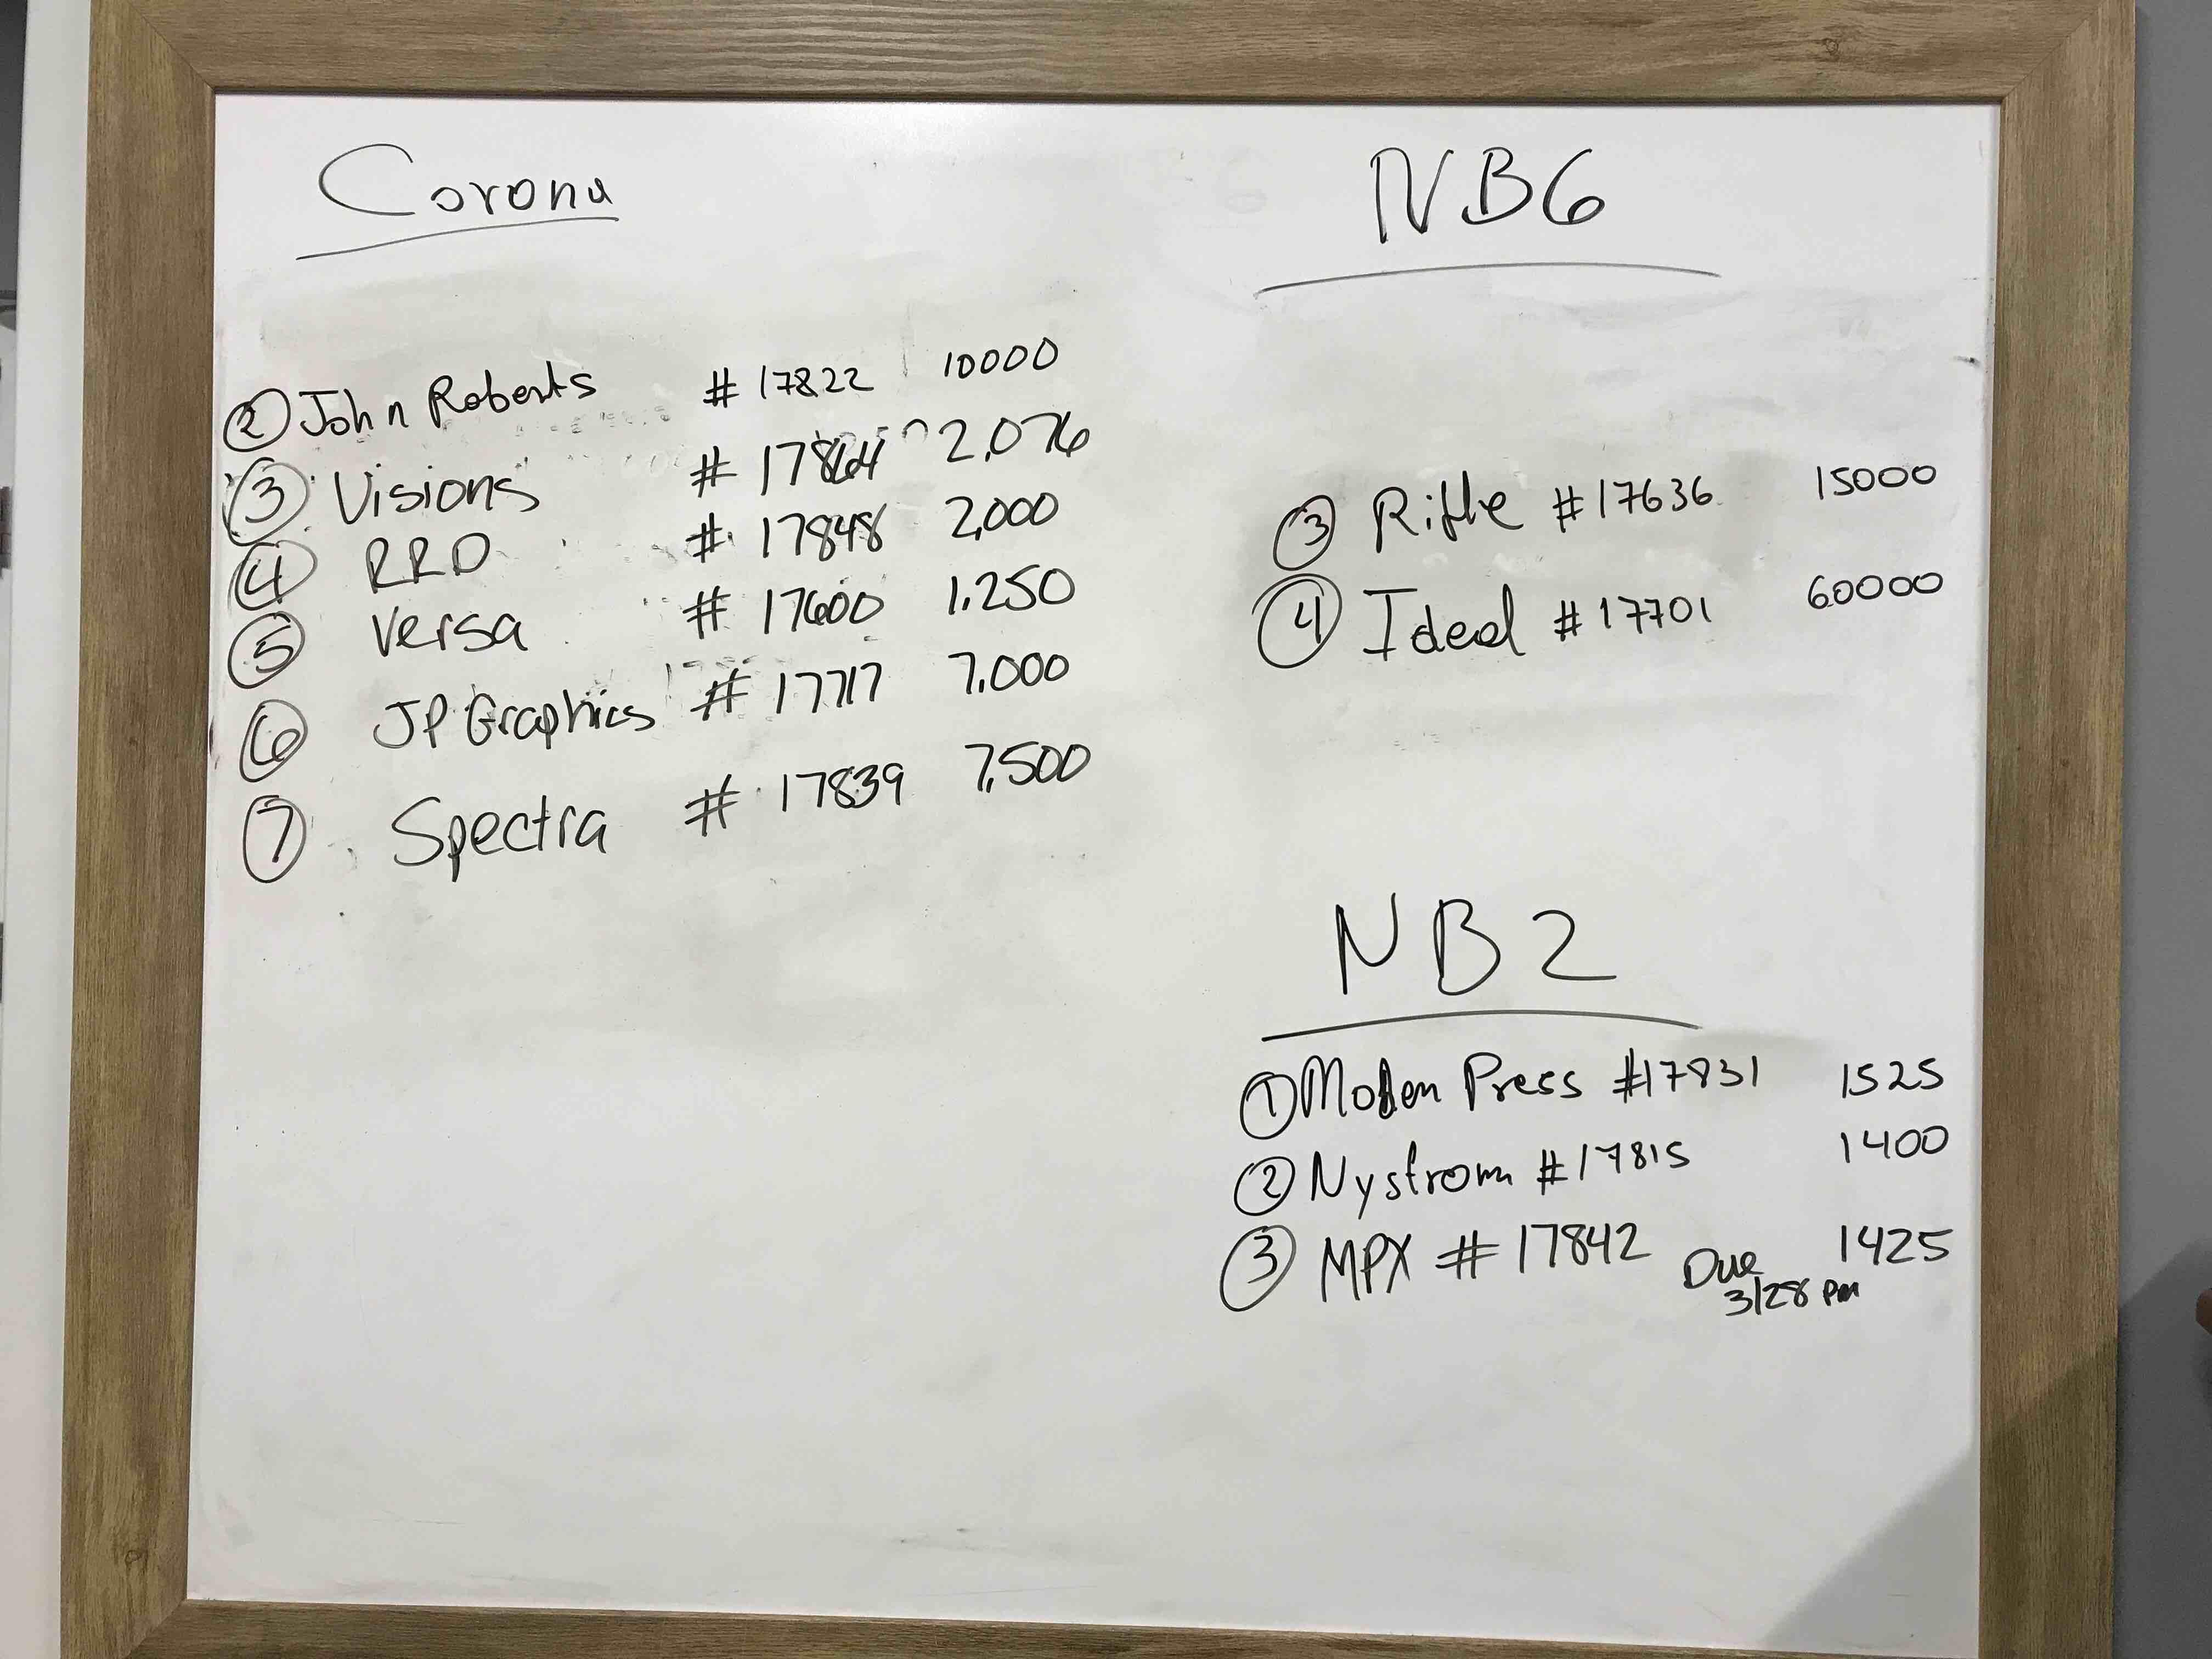 Corona
② John Roberts # 17822 10000
③ Visions # 17864 2,076
④ RRD # 17848 2,000
⑤ Versa # 17600 1,250
⑥ JP Graphics # 17717 7,000
⑦ Spectra # 17839 7,500
NB6
③ Rifle #17636 15000
④ Ideal #17701 60000
NB2
① Press #17831 1525
② Nystrom #17815 1400
③ MPX # 17842 Due 1425
3/28 pm